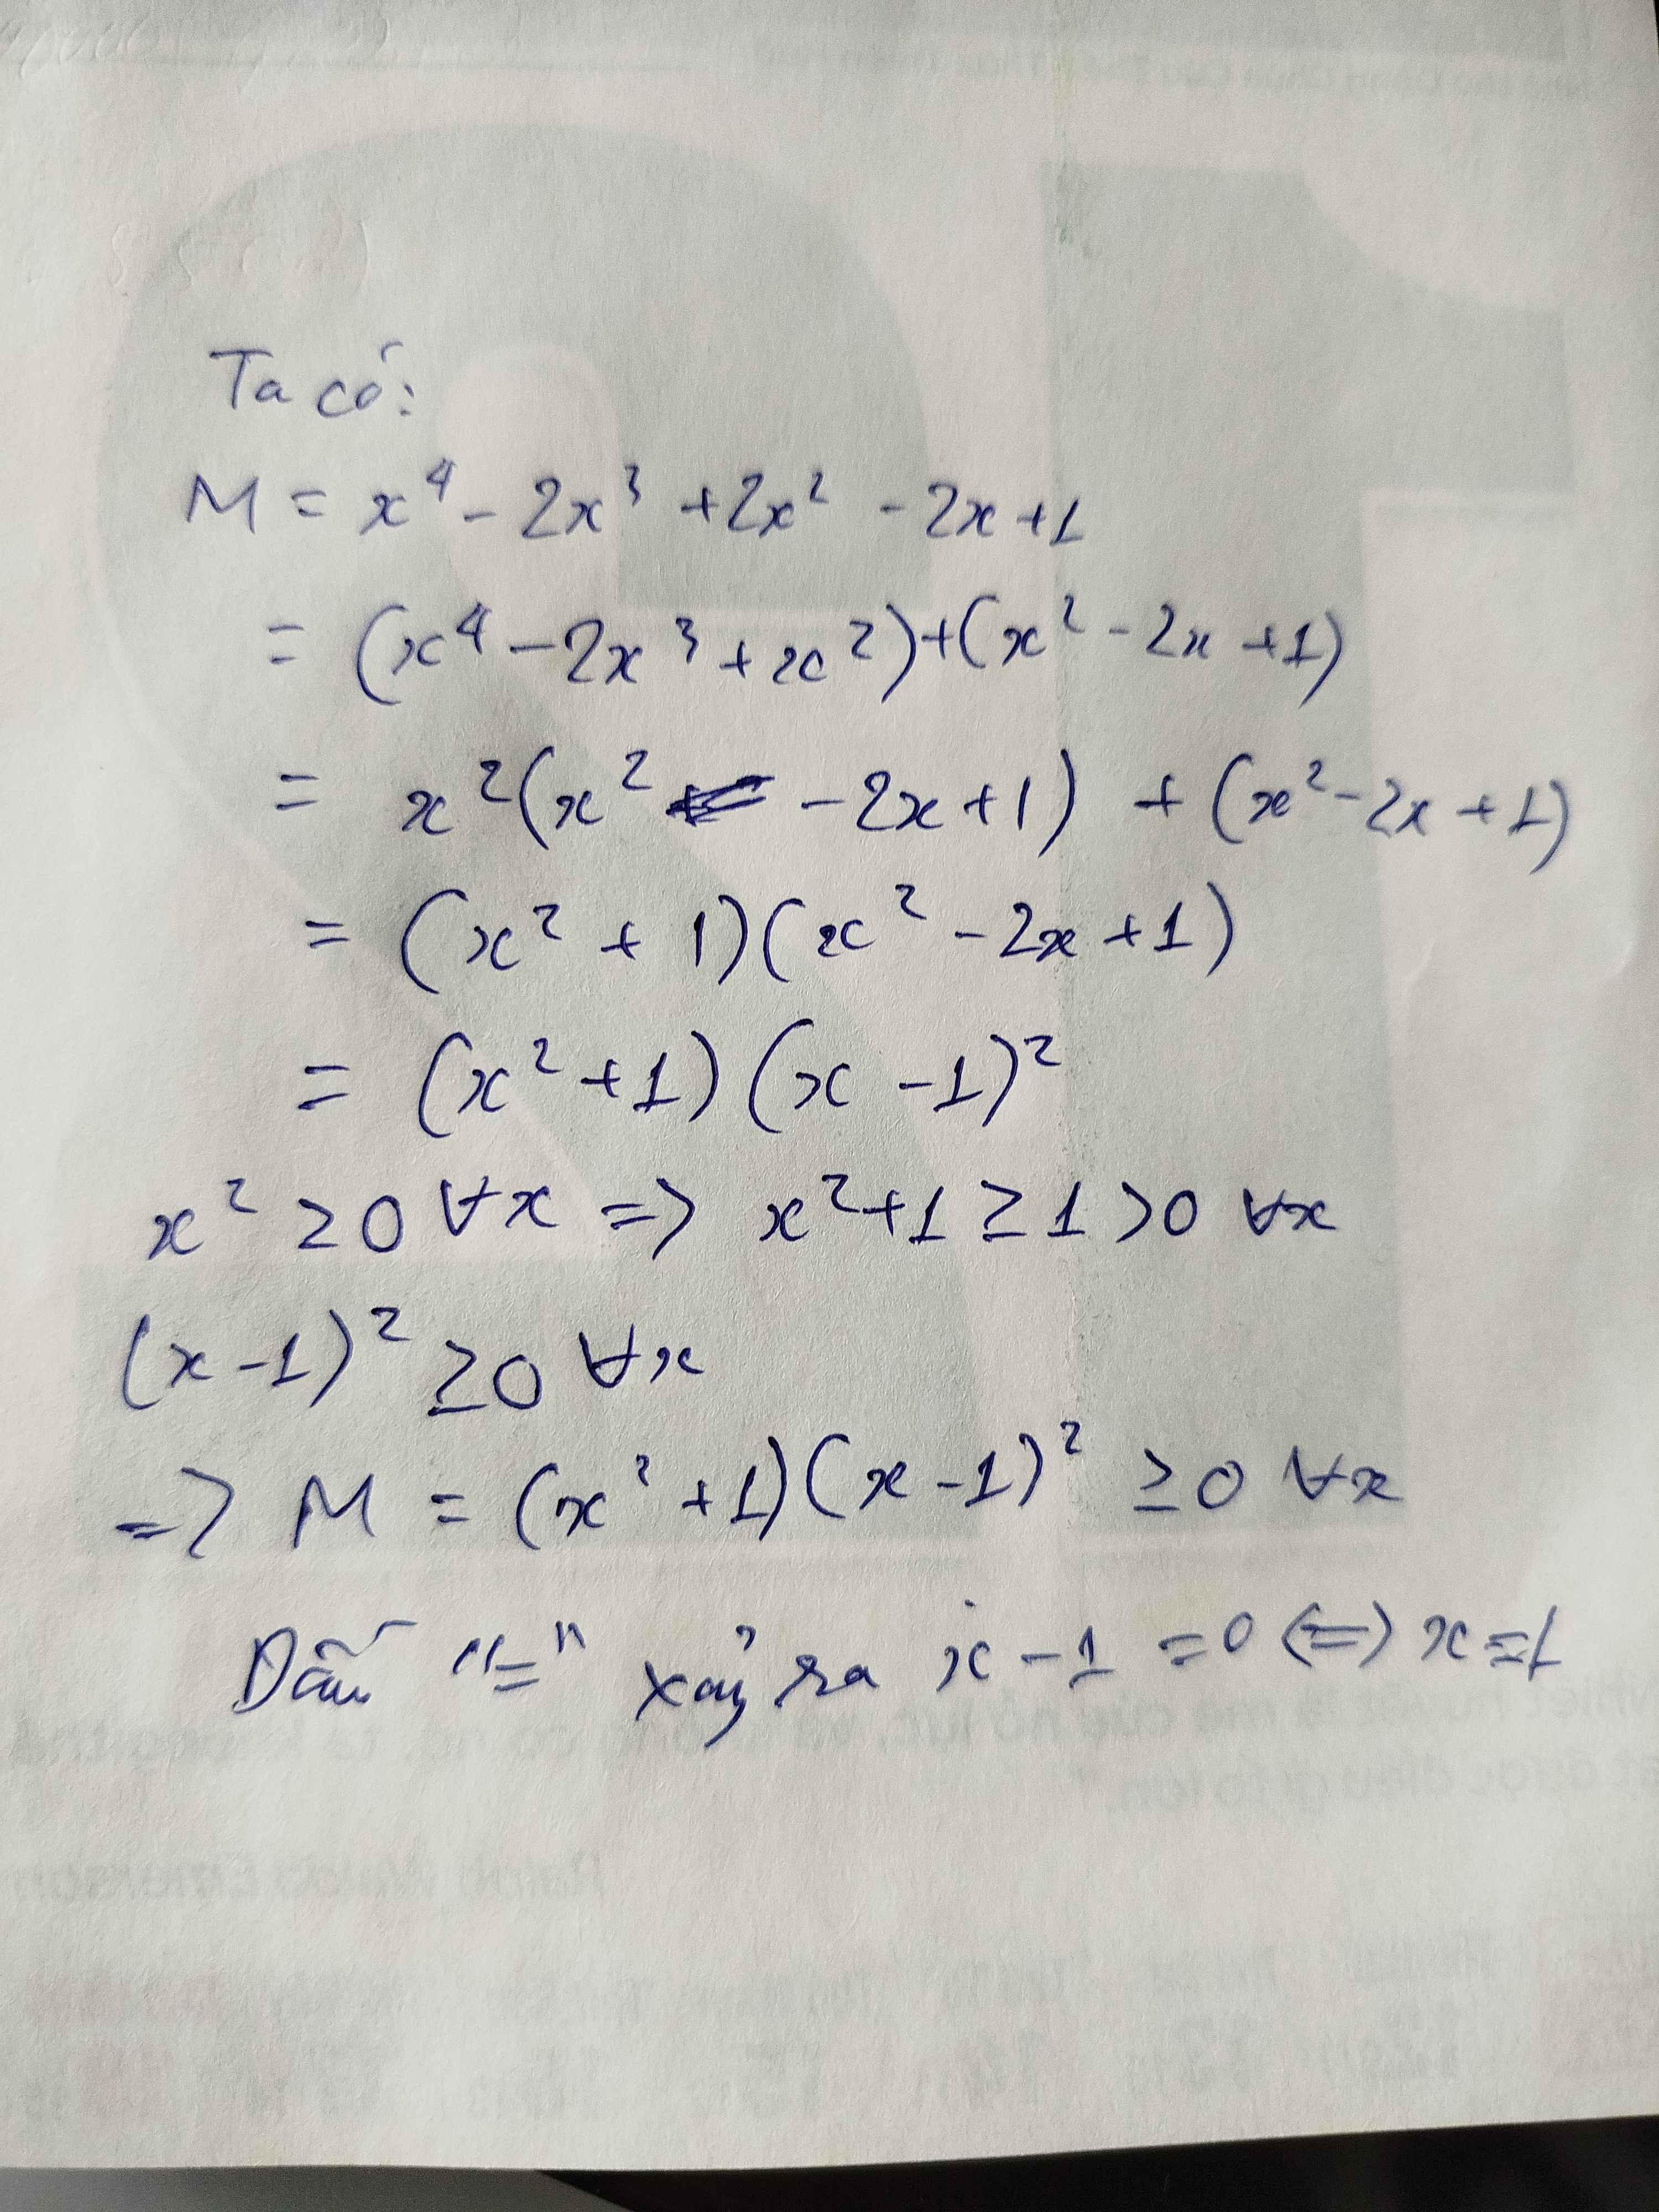 Ta có:
M = x⁴ - 2x³ + 2x² - 2x + 1
= (x⁴ - 2x³ + x²) + (x² - 2x + 1)
= x²(x² - 2x + 1) + (x² - 2x + 1)
= (x² + 1)(x² - 2x + 1)
= (x² + 1)(x - 1)²
x² ≥ 0 ∀x => x² + 1 ≥ 1 > 0 ∀x
(x - 1)² ≥ 0 ∀x
=> M = (x² + 1)(x - 1)² ≥ 0 ∀x
Dấu "=" xảy ra x - 1 = 0 <=> x = 1
Ralph Waldo Emerson